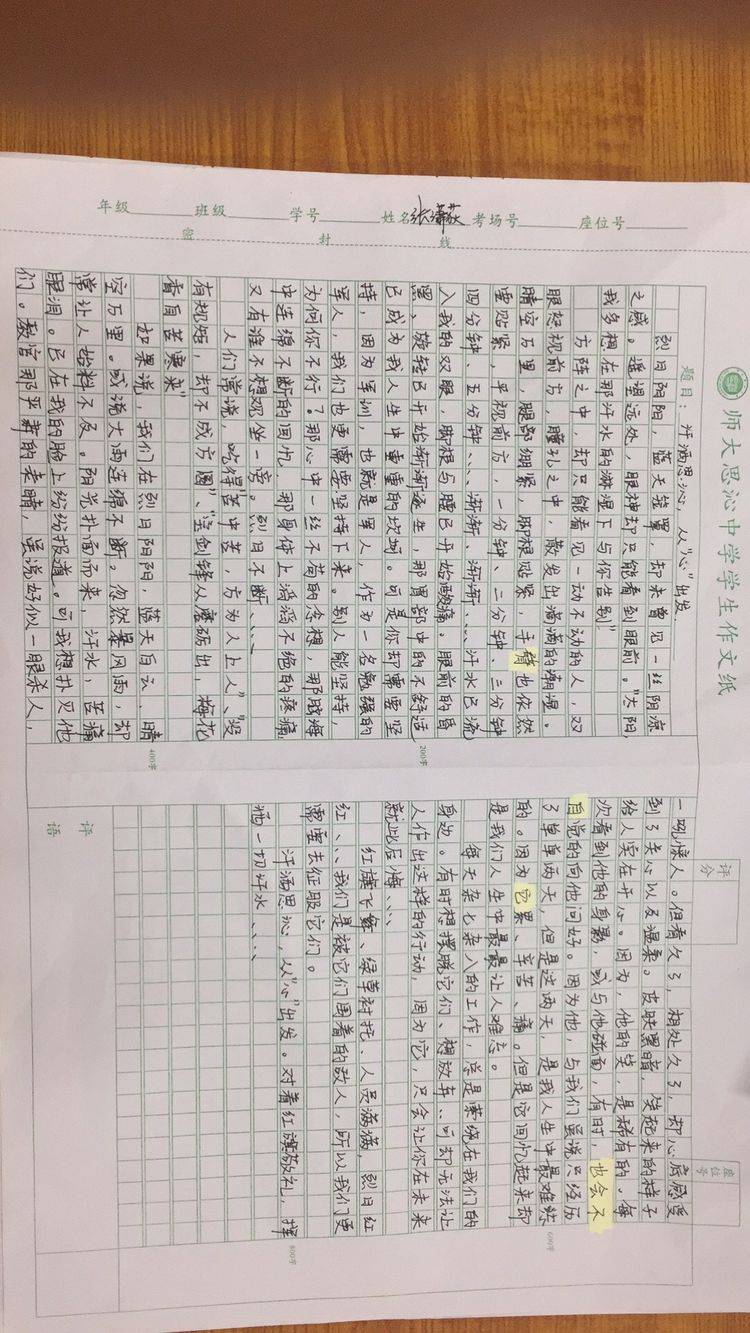 年级 班级 学号 姓名 考场号 座位号
密 封 线
师大思沁中学学生作文纸
题目：汗洒思沁，从“心”出发
烈日阳阳，蓝天笼罩，却未曾见一丝阴凉
之感。遥望远处，眼神却只能看到眼前。“太阳，
我多想在那汗水的淋湿下与你告别”
方阵之中，却只能看见一动不动的人，双
眼好视前方，瞳孔之中，散发出满满的潮湿。
晴空万里，腿部绷紧，脚根贴紧，手臂也依然
要贴紧，平视前方，一分钟、二分钟、三分钟
四分钟、五分钟、、、渐渐、渐渐、、、汗水已流
入我的双眼，脚根与腰已开始酸痛。眼前的昏
黑，旋转已开始渐渐逐生，那胃部中的不舒适，
已成为我人生中重重的坎坷。可是你却需要坚
持，因为军训，也就是军人，作为一名勉强的
军人，我们也更需要坚持下来。别人能坚持，
为何你不行？那心中一丝不苟的念想，那脑海
中连绵不断的回忆，那身体上滔滔不绝的疼痛
又有谁不想观坐一旁。烈日不断、、、
人们常说，吃得“苦中苦，方为人上人”、“没
有规矩，却不成方圆”、“宝剑锋从磨砺出，梅花
香自苦寒来”
如果说，我们在烈日阳阳，蓝天白云、晴
空万里。或说大雨连绵不断。忽然暴风雨，却
常让人始料不及。阳光扑面而来，汗水，苦痛
眼泪。已在我的脸上纷纷报道。可我想扑灭他
们。教官那严肃的表晴，虽说好似一眼杀人，
200字
400字
评分
座位号
一吼惊人。但看久了，相处久了，却心底感受
到了关心以及温柔。皮肤黑暗，笑起来的样子
给人实在开心。因为，他的笑，是稀有的。每
次看到他的身影，或与他碰面，有时，也会不
自觉的向他问好。因为他，与我们虽说只经历
了单单两天，但是这两天，是我人生中最难熬
的。因为它累、辛苦、痛。但是它回忆起来却
是我们人生中最最让人难忘。
每天杂七杂八的工作，总是萦绕在我们的
身边。有时想摆脱它们、想放弃、可却无法让
人作出这样的行动，因为它，只会让你在未来
就此后悔、、、
红旗飞舞、绿草衬托、人员满满，烈日红
红、、、我们是被它们围着的敌人，所以我们更
需要去征服它们。
汗洒思沁，从“心”出发。对着红旗敬礼，挥
洒一切汗水、、、、
600字
800字
评语